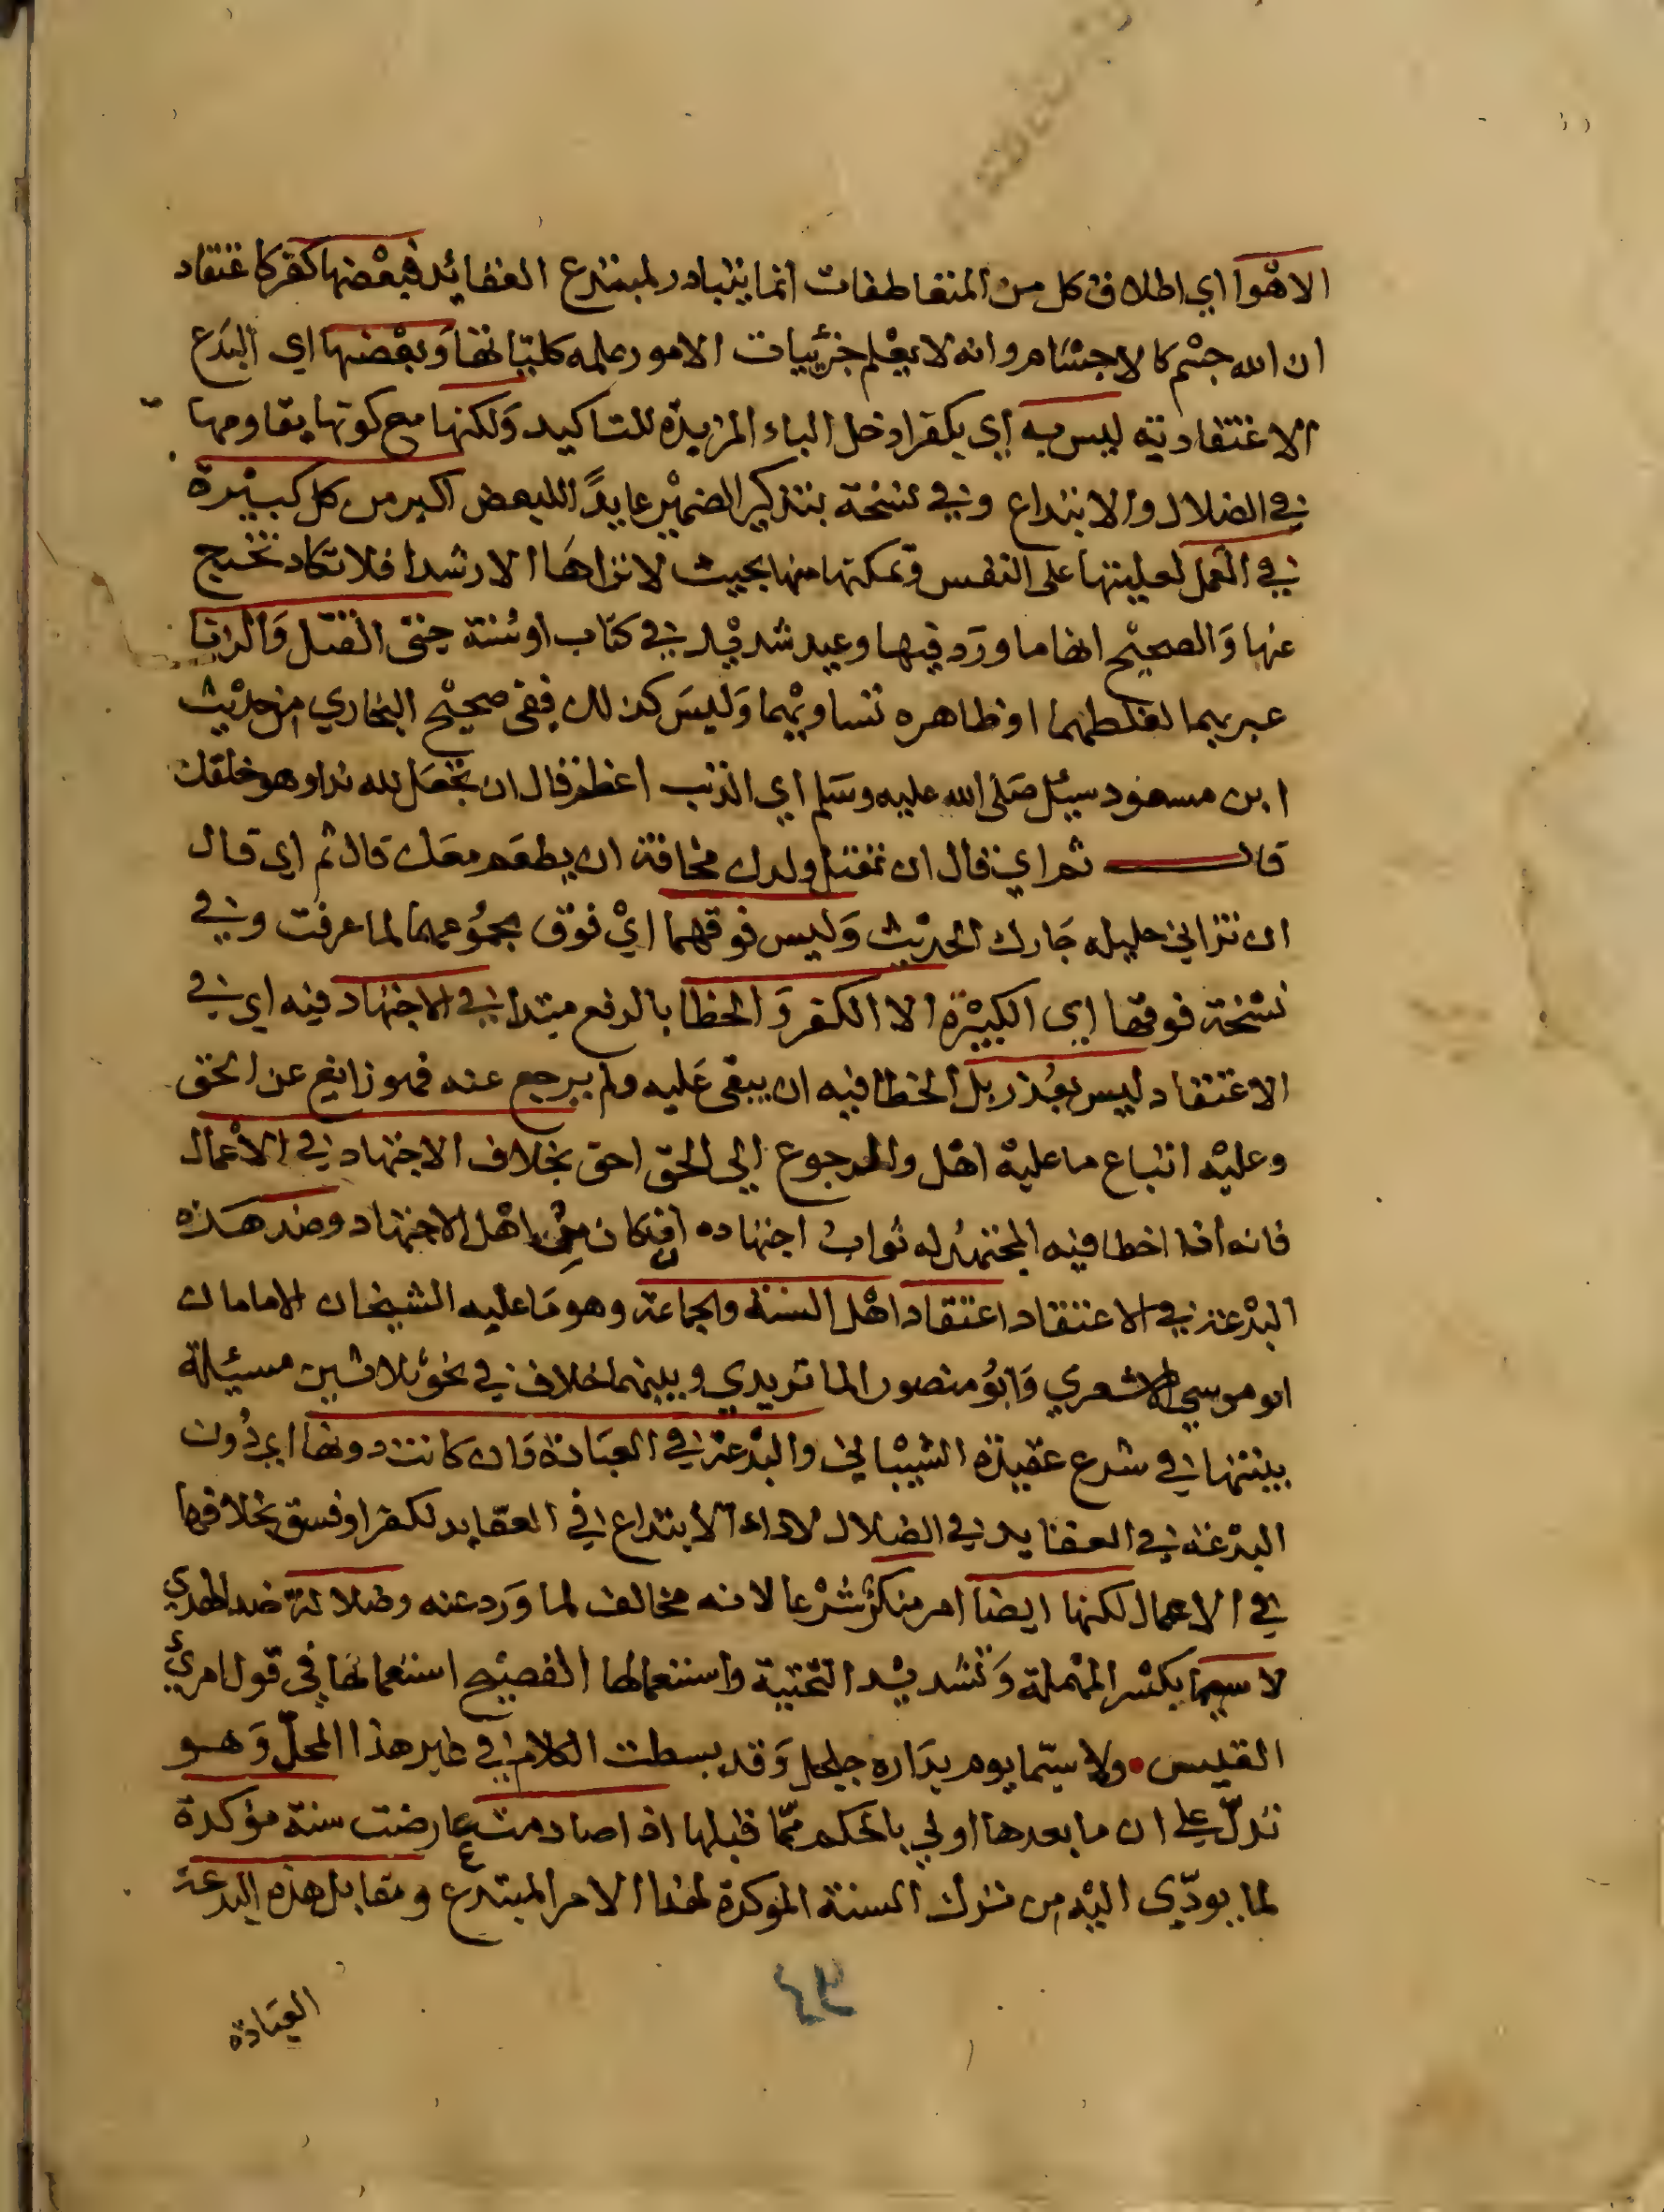 الاهوا اي اطلاق كل من المتعاطفات انما يتبادر لمبتدع العقائد فبعضها كفر كاعتقاد
ان الله جسم كالاجسام وانه لا يعلم جزئيات الامور علمه كلياتها وبعضها اي البدع
الاعتقادية ليس به اي بكفر ادخل الباء المزيدة للتاكيد ولكنها مع كونها يقاومها
في الضلال والابتداع وفي نسخة بتذكير الضمير عايدًا للبعض اكبر من كل كبيرة
في العمل لغلبتها على النفس وتمكنها منها بحيث لا نراها الا رشدا فلا تكاد تخرج
عنها والصحيح انها ما ورد فيها وعيد شديد في كتاب او سنة حتى القتل والزنا
عبر بهما لغلظهما او ظاهره تساويهما وليس كذلك ففي صحيح البخاري من حديث
ابن مسعود سيئل صلى الله عليه وسلم اي الذنب اعظم فقال ان تجعل لله ندا وهو خلقك
قال ثم اي قال ان تقتل ولدك مخافة ان يطعم معك قال ثم اي قال
ان تزاني حليله جارك الحديث وليس فوقهما اي فوق مجموعهما لما عرفت وفي
نسخة فوقها اي الكبيرة الا الكفر والخطا بالرفع مبتدا في الاجتهاد فيه اي في
الاعتقاد ليس بعذر بل الخطا فيه ان يبقى عليه ولم يرجع عنه فهو زايغ عن الحق
وعليه اتباع ما عليه اهل والرجوع الي الحق احق بخلاف الاجتهاد في الاعمال
فانه اذا اخطا فيه المجتهد له ثواب اجتهاده ان كان من اهل الاجتهاد وضد هذه
البدعة في الاعتقاد اعتقاد اهل السنة والجماعة وهو ما عليه الشيخان الامامان
ابو موسي الاشعري وابو منصور الماتريدي وبينهما خلاف في نحو ثلاثين مسيئلة
بينتها في شرع عقيدة الشيباني والبدعة في العبادة وان كانت دونها اي دون
البدعة في العقايد في الضلال لاداء الابتداع في العقايد لكفر او فسق بخلافها
في الاعمال لكنها ايضا امر منكر شرعا لانه مخالف لما ورد عنه وضلالة ضد الهدي
لا سيما بكسر المهملة وتشديد التحتية واستعمالها الفصيح استعمالها في قول امرئ
القيس ولا سيما يوم بداره جلجل وقد بسطت الكلام في غير هذا المحل وهو
تدل علي ان ما بعدها اولي بالحكم مما قبلها اذا صادمت عارضت سنة مؤكدة
لما يودي اليه من ترك السنة الموكدة لهذا الامر المبتدع ومقابل هذه البدعة
العبادة